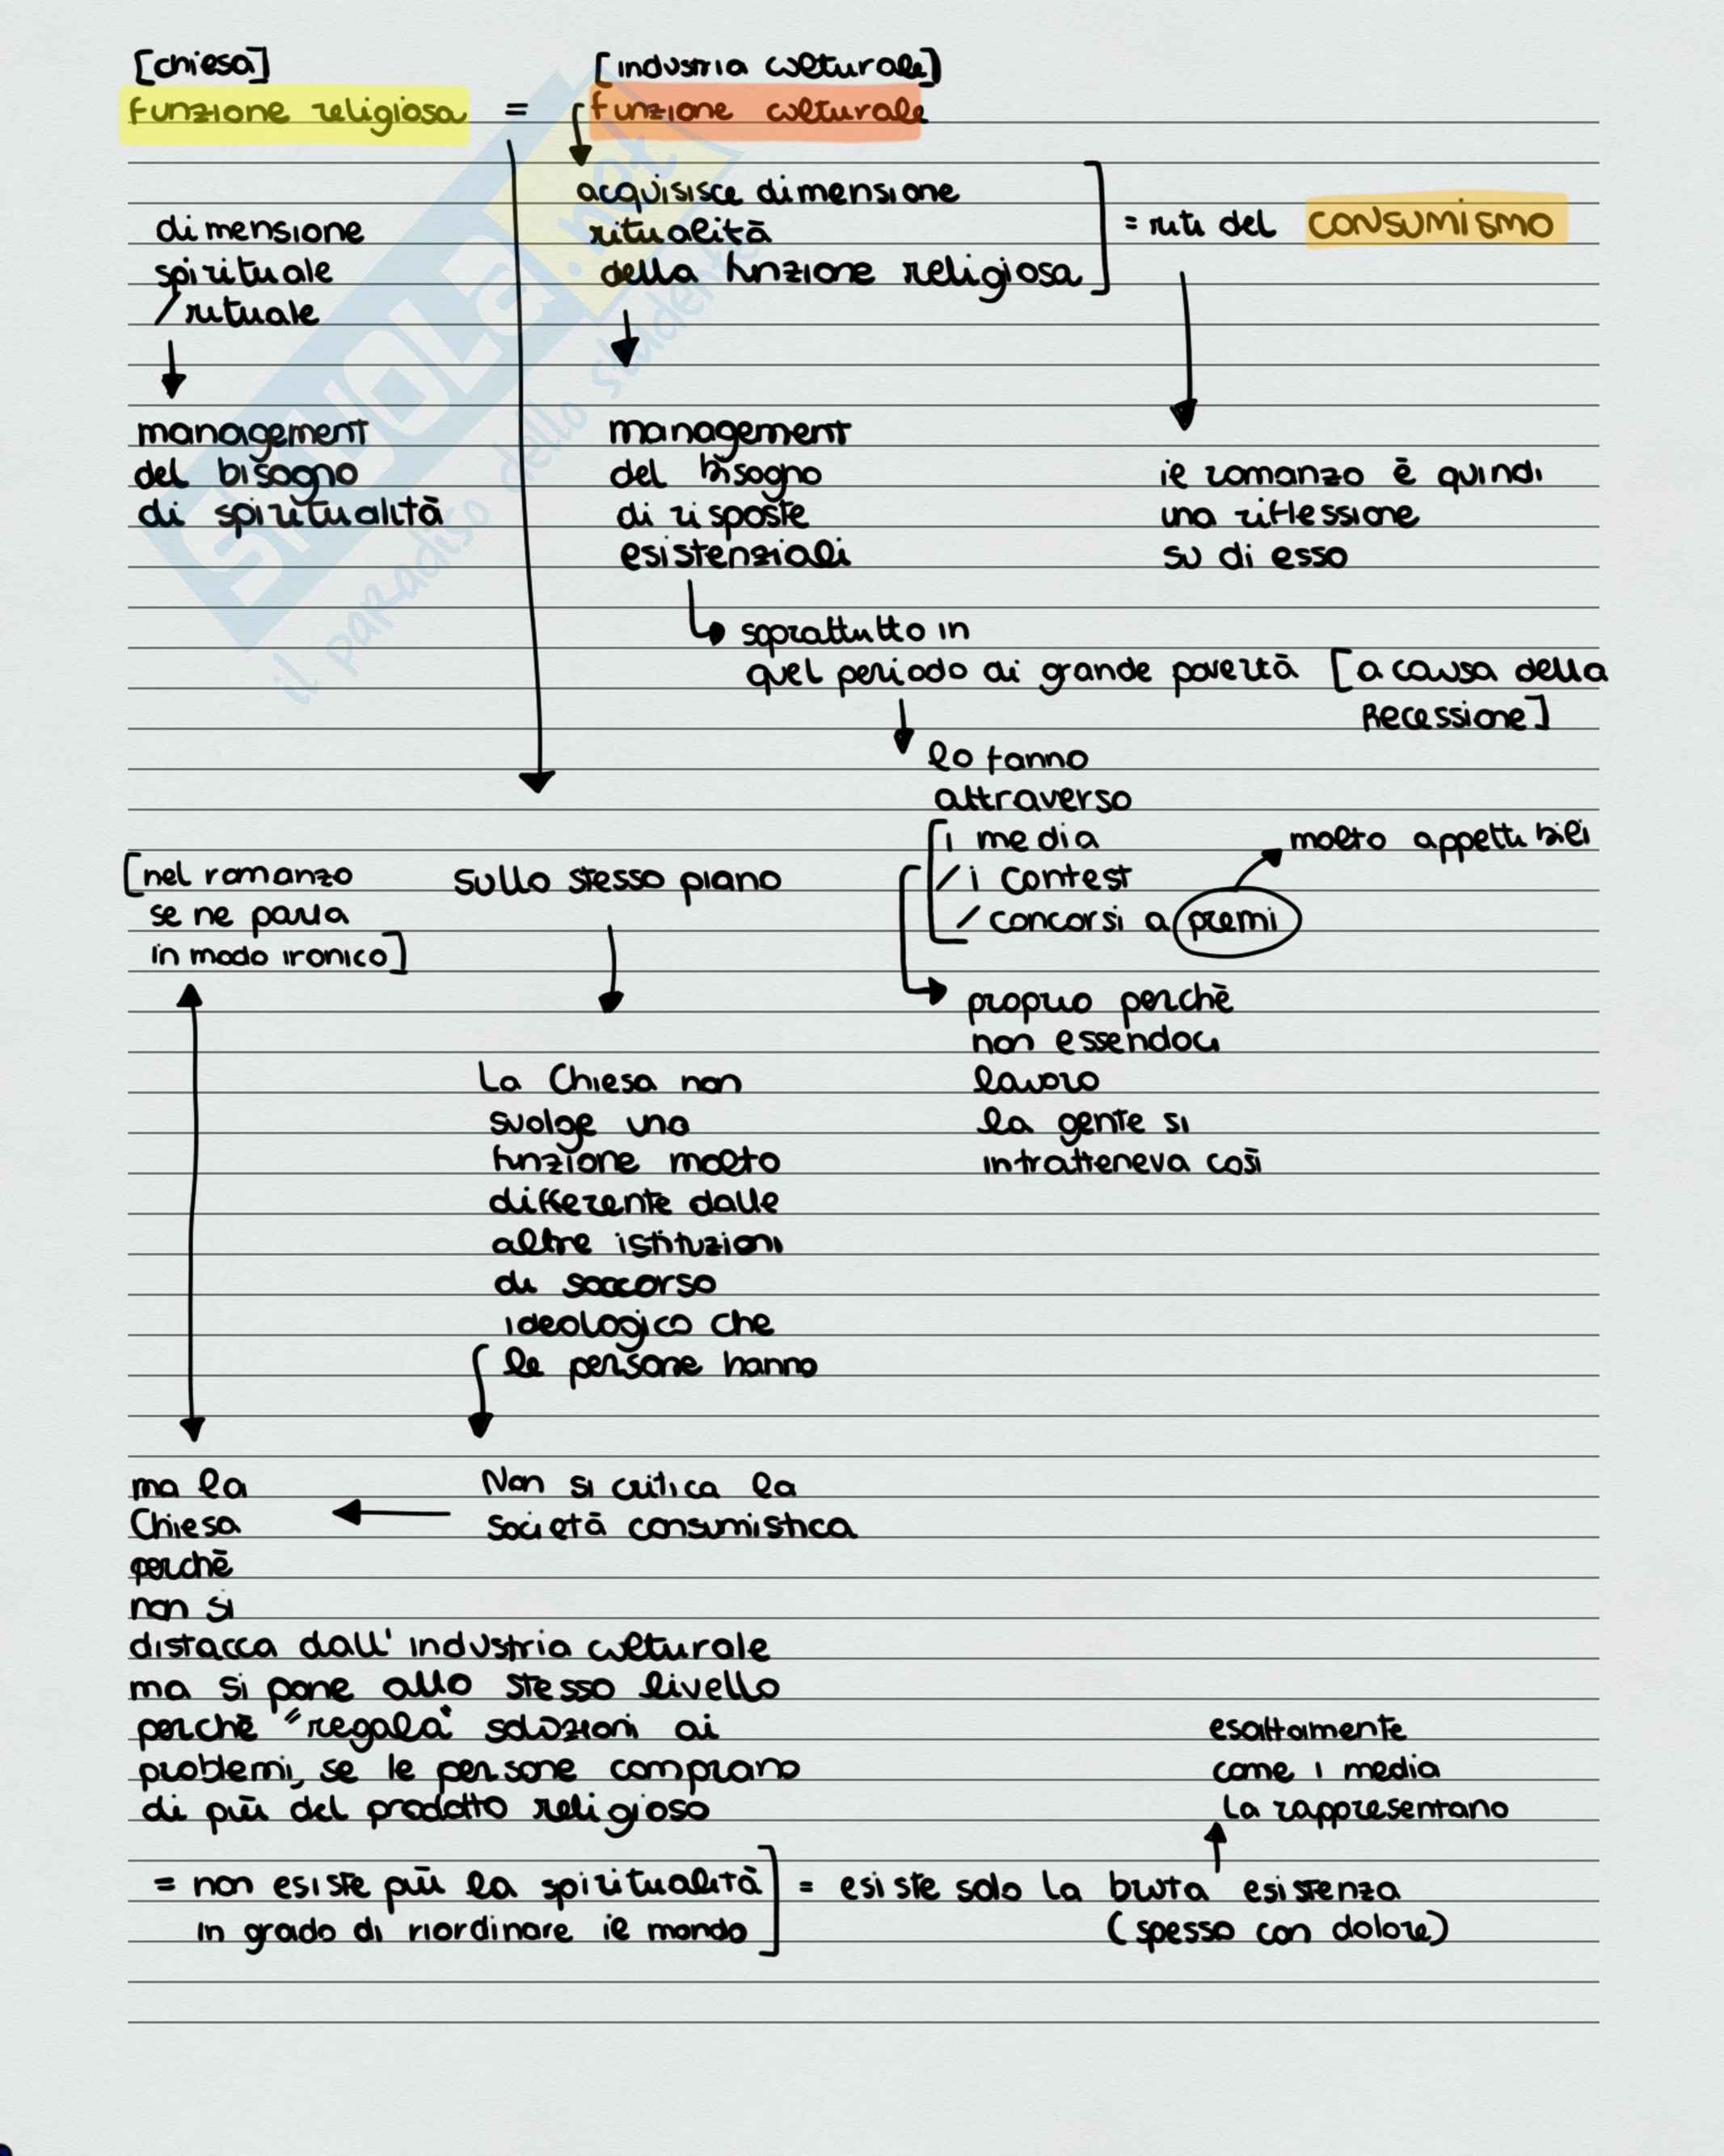 [chiesa]
[industria culturale]
funzione religiosa = funzione culturale
acquisisce dimensione
ritualità
della funzione religiosa
= riti del consumismo
dimensione
spirituale
/rituale
management
del bisogno
di spiritualità
management
del bisogno
di risposte
esistenziali
il romanzo è quindi
una riflessione
su di esso
soprattutto in
quel periodo di grande povertà [a causa della
Recessione]
lo fanno
attraverso
i media
/ i contest
/ concorsi a premi
molto appetibili
[nel romanzo
se ne parla
in modo ironico]
sullo stesso piano
proprio perchè
non essendoci
lavoro
la gente si
intratteneva così
La Chiesa non
svolge una
funzione molto
differente dalle
altre istituzioni
di soccorso
ideologico che
le persone hanno
Non si critica la
società consumistica
ma la
Chiesa
perchè
non si
distacca dall'industria culturale
ma si pone allo stesso livello
perchè "regala" soluzioni ai
problemi, se le persone comprano
di più del prodotto religioso
esattamente
come i media
la rappresentano
= non esiste più la spiritualità
in grado di riordinare il mondo
= esiste solo la bruta esistenza
(spesso con dolore)
SKUOLA.net
il paradiso dello studente